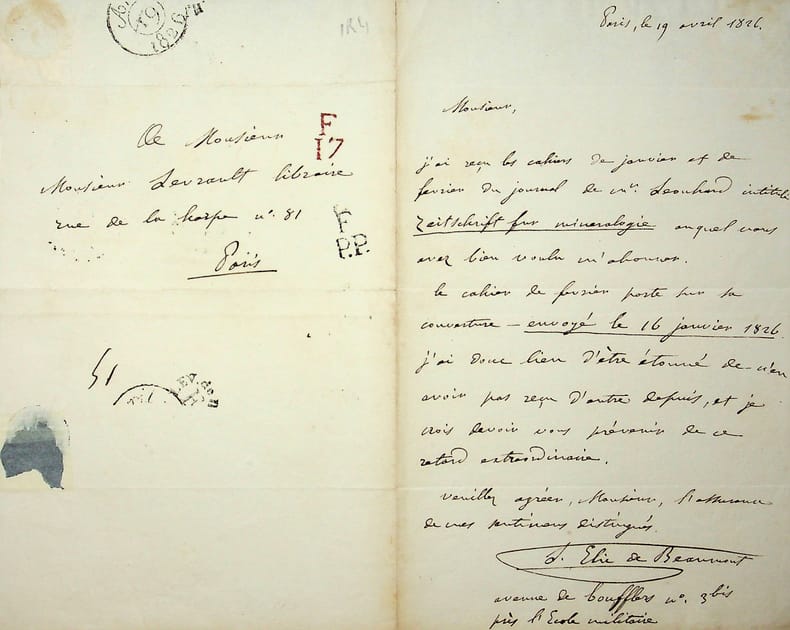 19
1826
1R4
A Monsieur
Monsieur Levrault libraire
rue de la harpe n°. 81
Paris
F
17
F
P.P.
Paris, le 19 avril 1826.
Monsieur,
j'ai reçu les cahiers de janvier et de
fevrier du journal de mr. Leonhard intitulé
Zeitschrift fur mineralogie auquel vous
avez bien voulu m'abonner.
le cahier de fevrier porte sur sa
couverture - envoyé le 16 janvier 1826.
j'ai donc lieu d'être étonné de n'en
avoir pas reçu d'autre depuis, et je
crois devoir vous prévenir de ce
retard extraordinaire.
veuillez agréer, Monsieur, l'assurance
de mes sentimens distingués.
L. Elie de Beaumont
avenue de boufflers n°. 3bis
près l'Ecole militaire